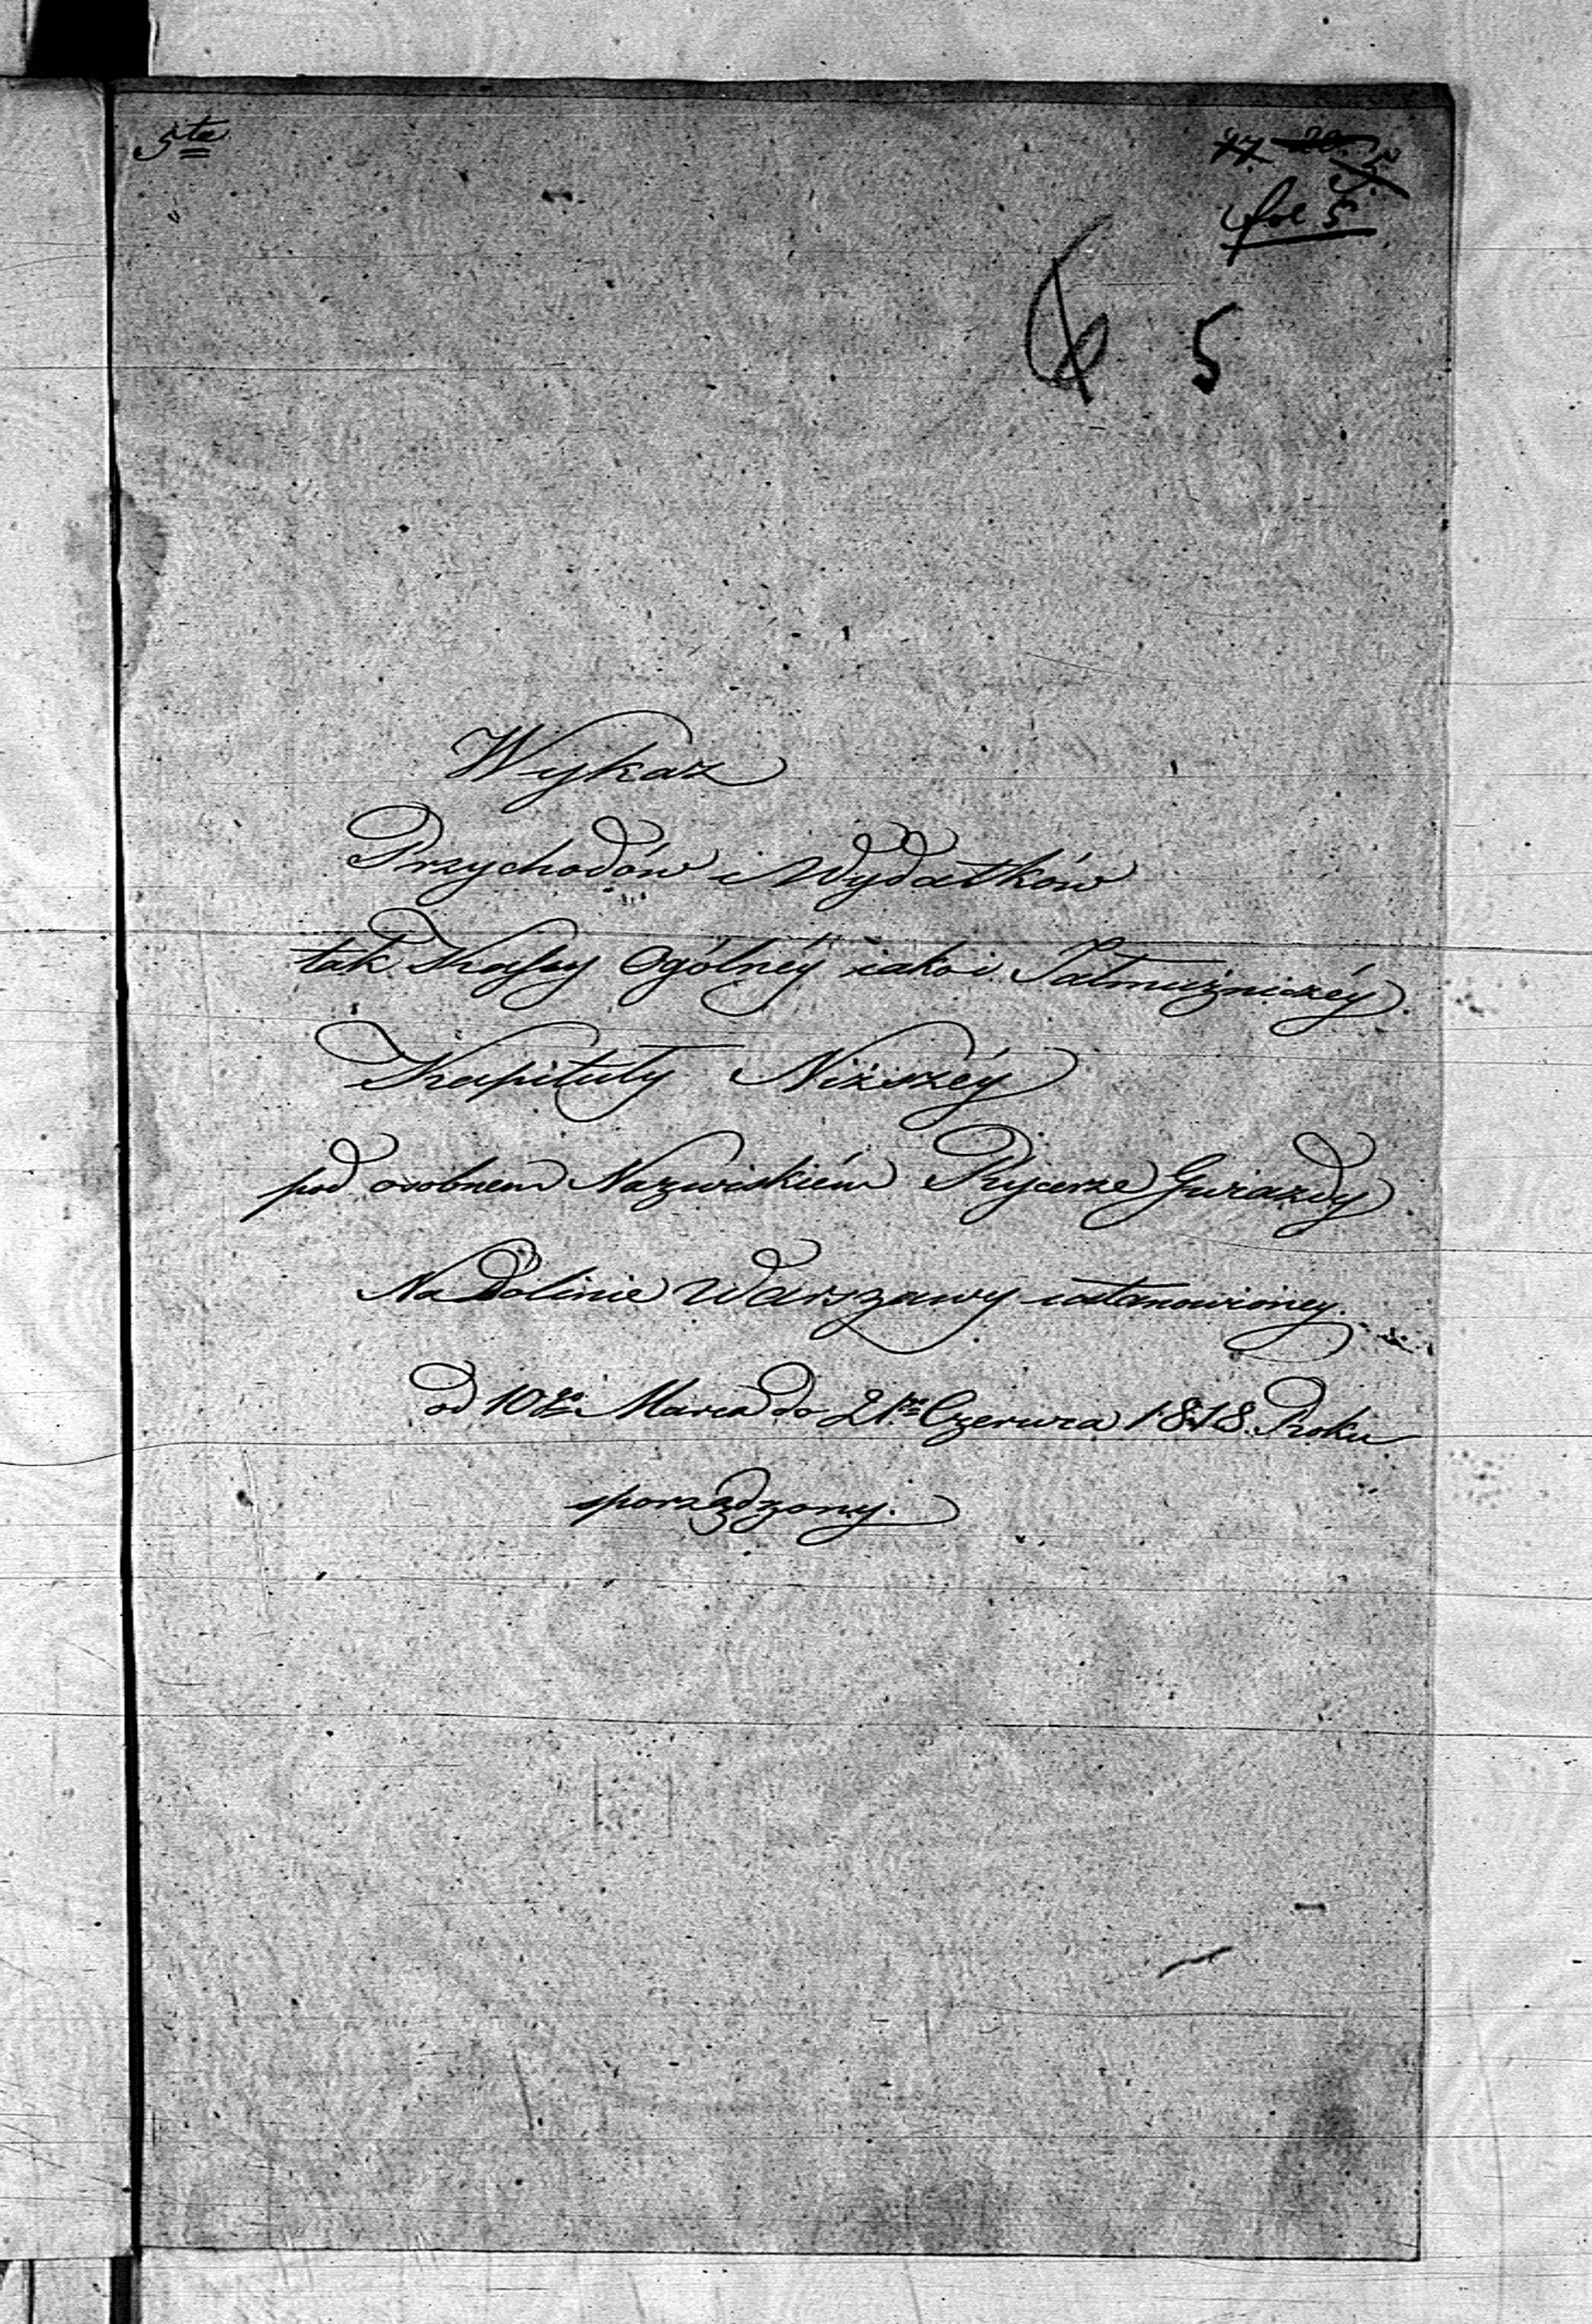 5te
fol 5
5
Wykaz
Przychodów i Wydatków
tak Kassy Ogólnéy iako i Jałmużniczéy
Kapituły Niższéy
pod osobnem Nazwiskiém Rycerze Gwiazdy
Na Dolinie Warszawy ustanowioney.
od 10go Marca do 21go Czerwca 1818. Roku
sporządzony.